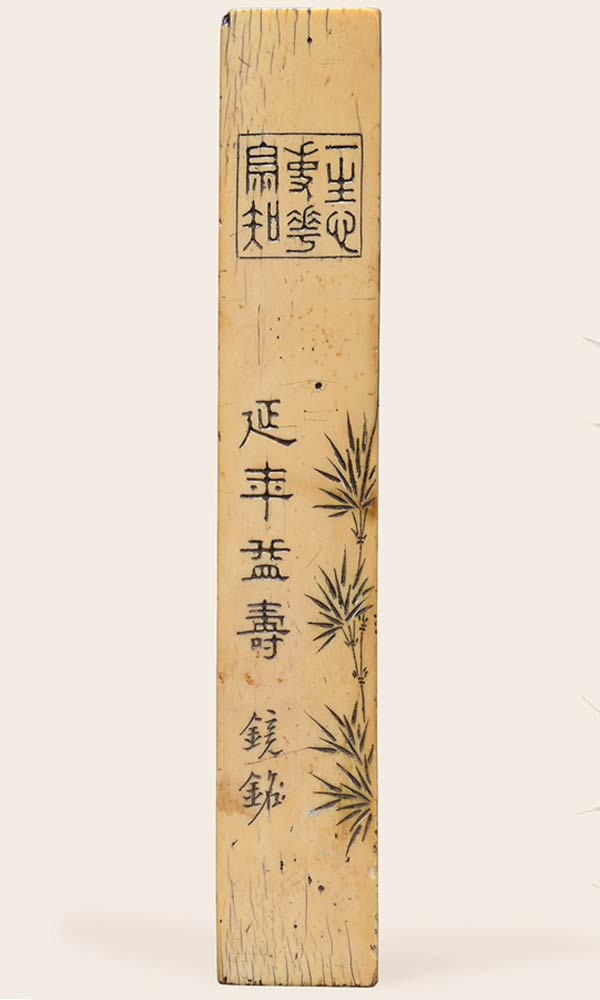 一生心
事花
鳥知
延年益壽 鏡銘